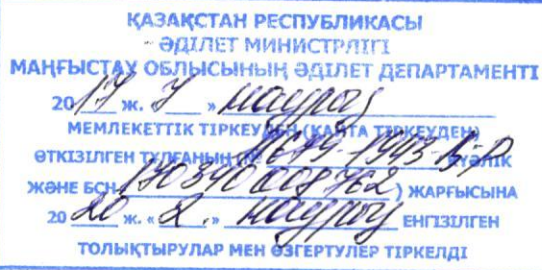 ҚАЗАҚСТАН РЕСПУБЛИКАСЫ
ӘДІЛЕТ МИНИСТРЛІГІ
МАҢҒЫСТАУ ОБЛЫСЫНЫҢ ӘДІЛЕТ ДЕПАРТАМЕНТІ
20 17 ж. 7 » наурыз
МЕМЛЕКЕТТІК ТІРКЕУДЕН (ҚАЙТА ТІРКЕУДЕН)
ӨТКІЗІЛГЕН ТҰЛҒАНЫҢ (№ 1943- КУӘЛІК
ЖӘНЕ БСН 170340008762 ) ЖАРҒЫСЫНА
20 20 ж. « 2. » наурыз ЕНГІЗІЛГЕН
ТОЛЫҚТЫРУЛАР МЕН ӨЗГЕРТУЛЕР ТІРКЕЛДІ